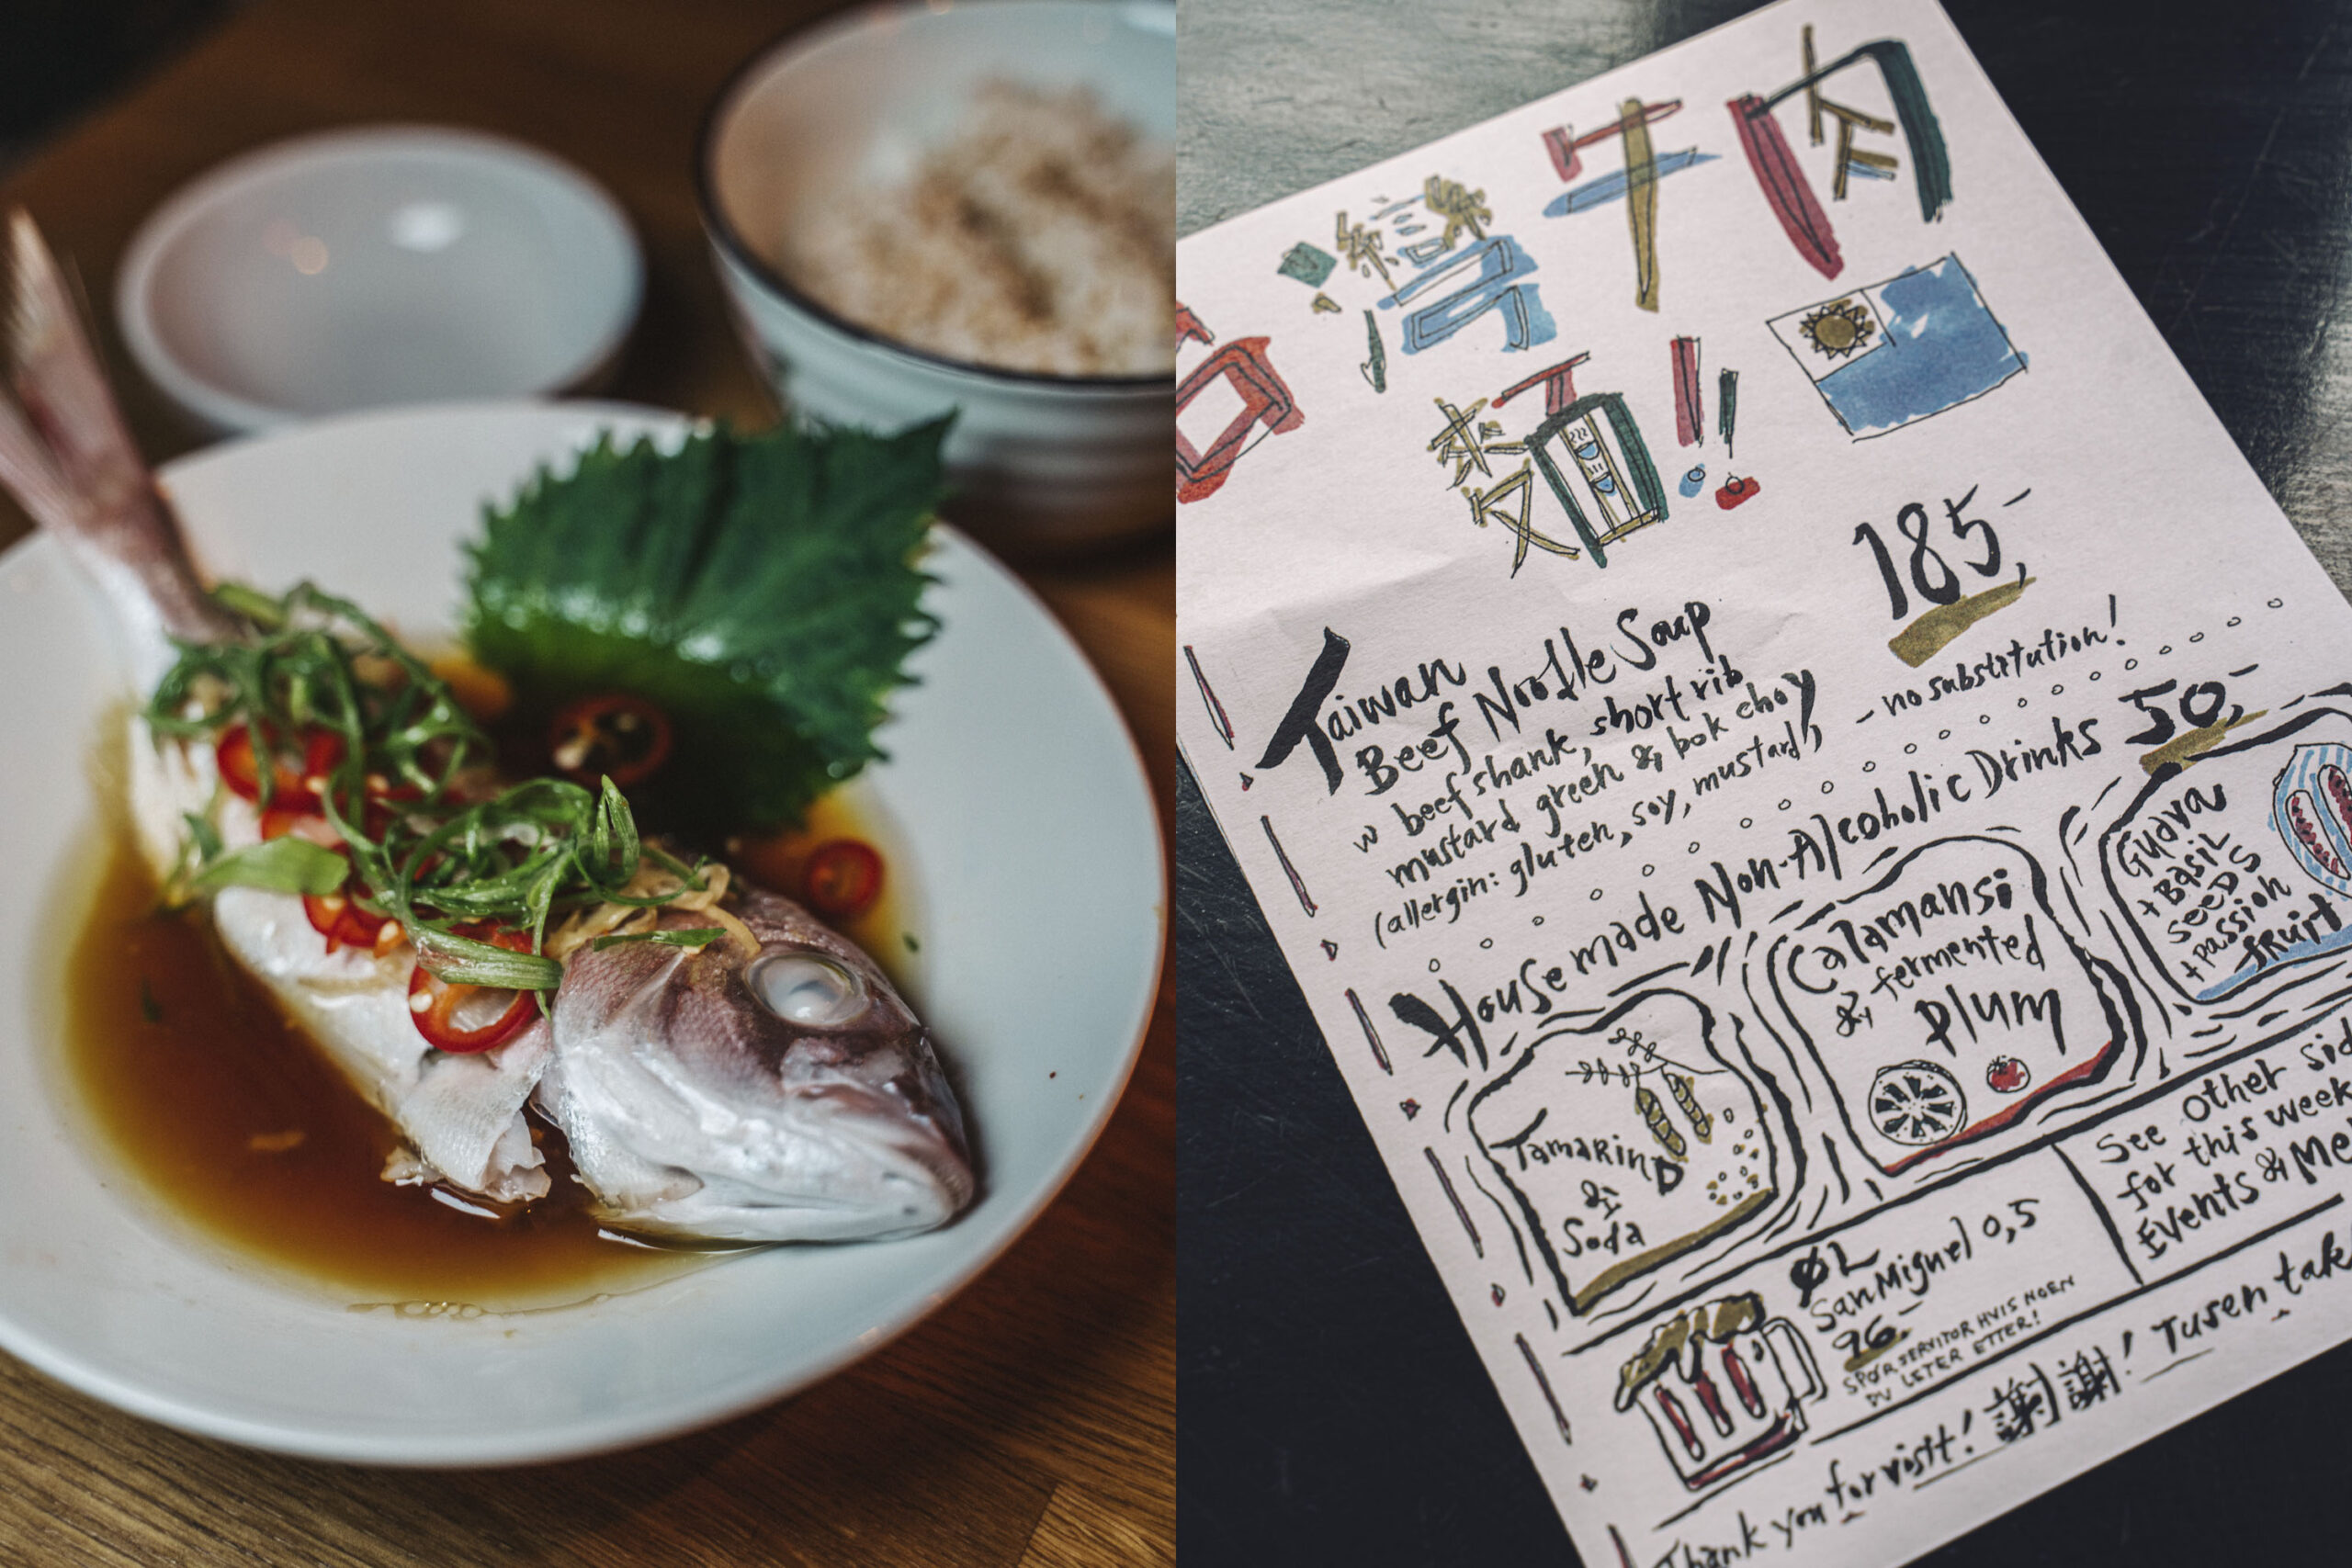 台灣牛肉
麵!!
185,-
Taiwan
Beef Noodle Soup
w beef shank, short rib
mustard green & bok choy
(allergin: gluten, soy, mustard)
- no substitution!
House made Non-Alcoholic Drinks 50,-
Tamarind
&
Soda
Calamansi
& fermented
Plum
Guava
+ Basil
seeds
+ passion
fruit
ØL
San Miguel 0,5
96,-
SPØR SERVITØR HVIS NOEN
DU LETER ETTER!
See other sid
for this week
Events & Me
Thank you for visit! 謝謝! Tusen takk